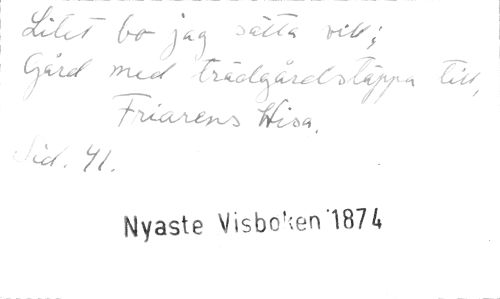 Litet bo jag sätta vill;
Gård med trädgårdstäppa till,
Friarens Visa.
Sid. 41.
Nyaste Visboken 1874